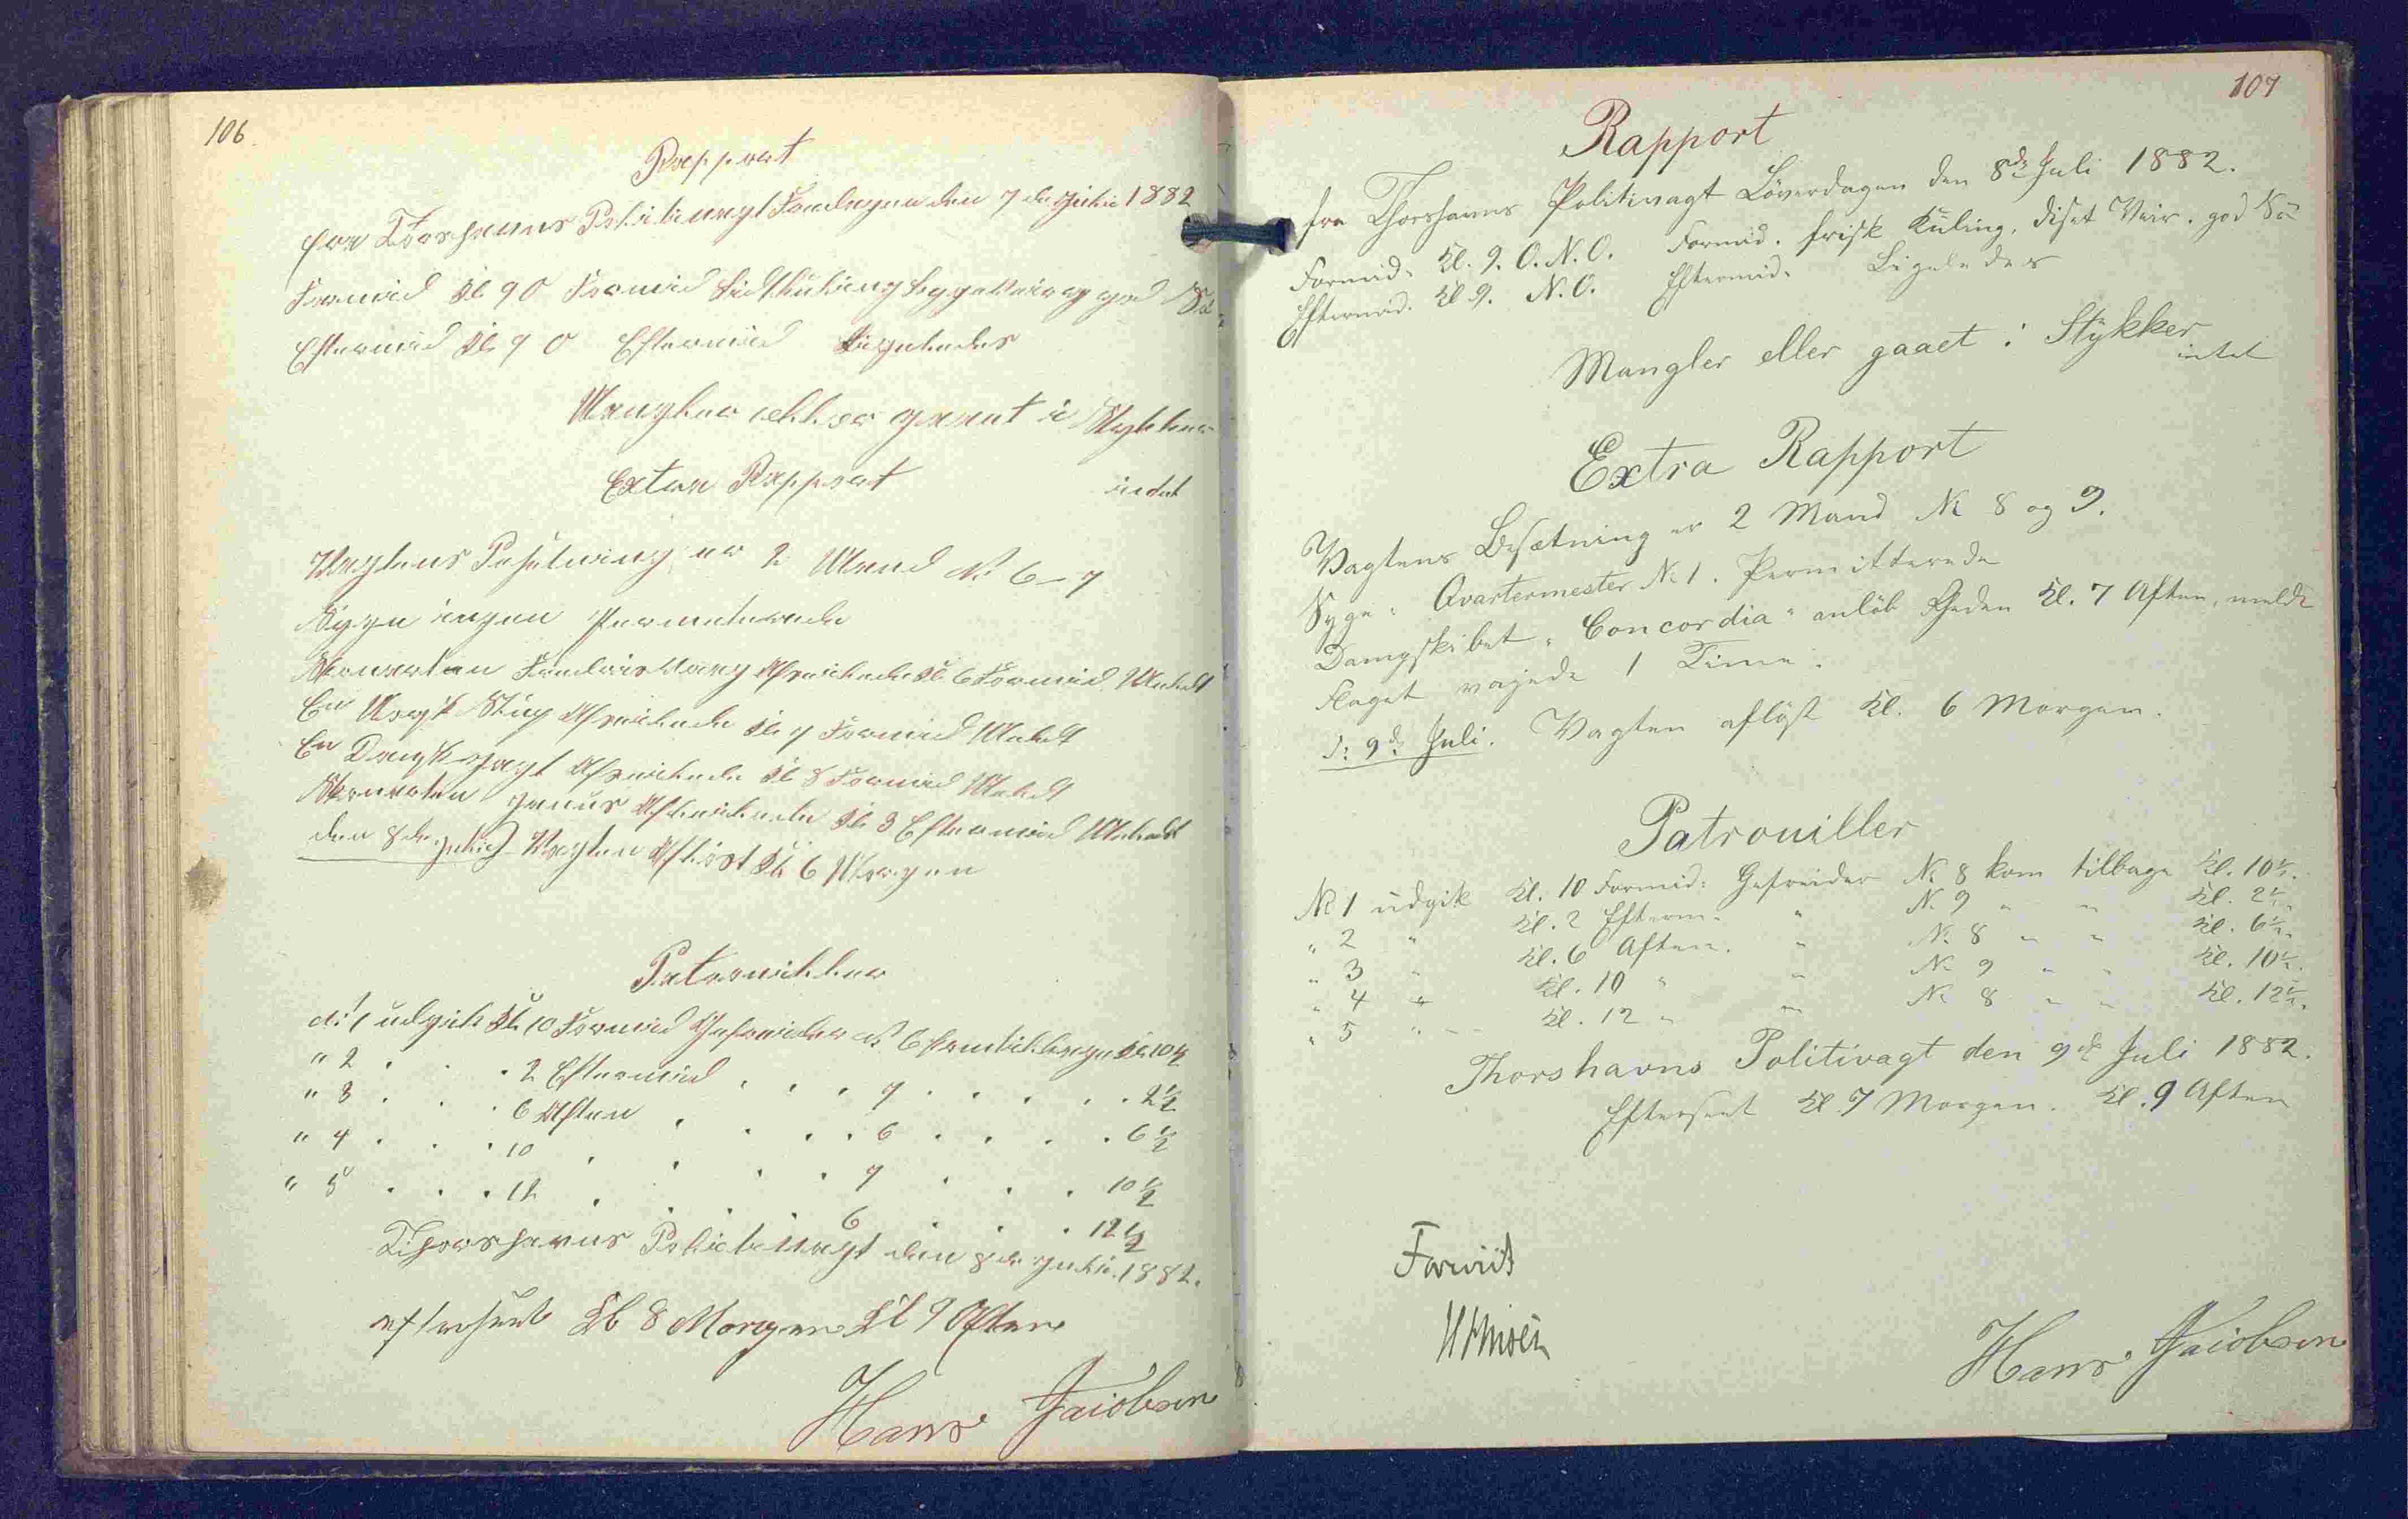 106
Rapport
fra Thorshavns Politivagt Fredagen den 7de Juli 1882
Formid Kl 9 O Formid Lidt Kuling Bygeveir og god Sö
Eftermid Kl 9 O Eftermid Ligeledes
Mangler eller gaaet i Stykker
Extra Rapport
intet
Vagtens Besetning er 2 Mand No 6-7
Syge ingen Permiterede
Skonerten Afseilede Kl 6 Formid Meldt
En Norsk Afseilede Kl 7 Formid Meldt
En Dansk Jagt Afseilede Kl 8 Formid Meldt
Skonerten Janus Afseilede Kl 3 Eftermid Meldt
den 8de Juli Vagten Aflöst Kl 6 Morgen
Patrouiller
No 1 udgik Kl 10 Formid Gefreider No 6 kom tilbage Kl 10½
" 2 . . . 2 Eftermid . . . 7 . . . . . 2½
" 3 . . . 6 Aften . . . . 6 . . . . 6½
" 4 . . . 10 . . . . 7 . . . 10½
" 5 . . . 12 . . . . 6 . . . 12½
Thorshavns Politivagt den 8de Juli 1882.
efterseet Kl 8 Morgen Kl 9 Aften
Hans Jacobsen
107
Rapport
fra Thorshavns Politivagt Löverdagen den 8de Juli 1882.
Formid. Kl. 9. O.N.O. Formid. frisk Kuling, diset Veir. god Sö
Eftermid. Kl 9. N.O. Eftermid. Ligeledes
Mangler eller gaaet i Stykker
intet
Extra Rapport
Vagtens Besætning er 2 Mand No 8 og 9.
Syge: Qvartermester No 1. Permitterede
Dampskibet "Concordia" anlöb Rheden Kl. 7 Aften, meldt
Flaget vajede 1 Time.
d: 9de Juli. Vagten aflöst Kl. 6 Morgen.
Patrouiller
No 1 udgik Kl. 10 Formid: Gefreider No 8 kom tilbage Kl. 10½.
" 2 " Kl. 2 Efterm: " No 9 " " Kl. 2½.
" 3 " Kl. 6 Aften. " No 8 " " Kl. 6½.
" 4 " Kl. 10 " " No 9 " " Kl. 10½.
" 5 " Kl. 12 " " No 8 " " Kl. 12½.
Thorshavns Politivagt den 9de Juli 1882.
Efterseet Kl 7 Morgen. Kl. 9 Aften
Foreviist
Hans Jacobsen